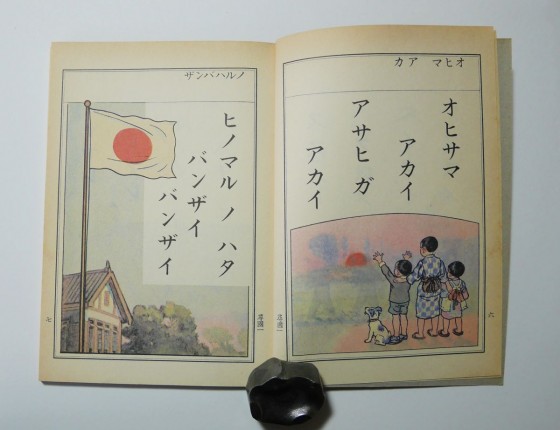 オヒマ アカ
オヒサマ
アカイ
アサヒ ガ
アカイ
六
尋國一
ノルハバンザ
ヒノマル ノ ハタ
バンザイ
バンザイ
尋國一
七